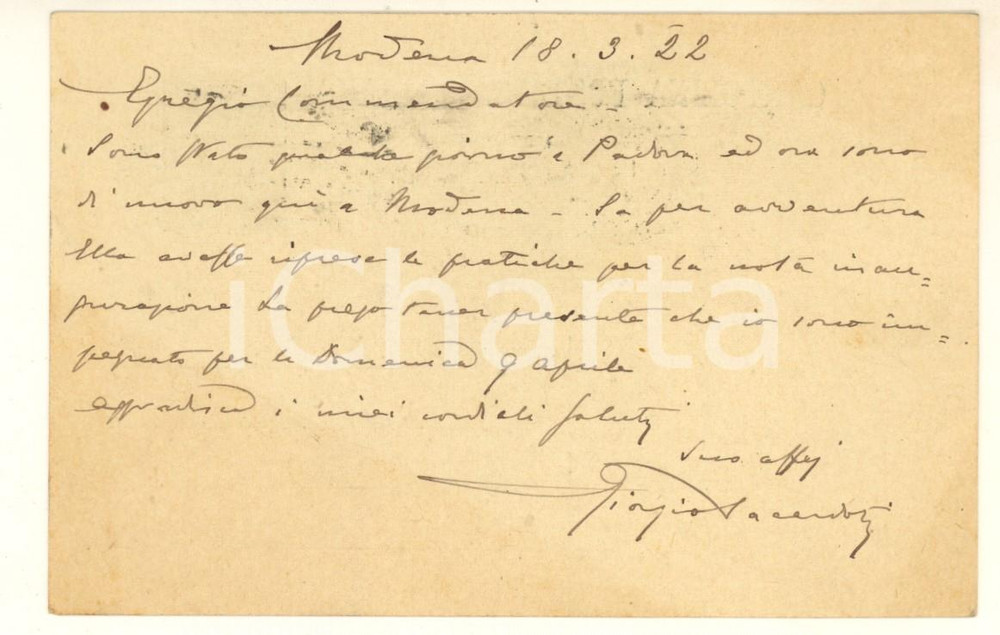 Modena 18. 3. 22
Egregio Commendatore -
Sono stato qualche giorno a Padova ed ora sono
di nuovo qui a Modena - Se per avventura
Ella avesse ripreso le pratiche per la nota inau=
gurazione La prego tener presente che io sono im=
pegnato per la Domenica 9 Aprile
i miei cordiali saluti
Suo aff
Giorgio Sacerdoti
iCharta